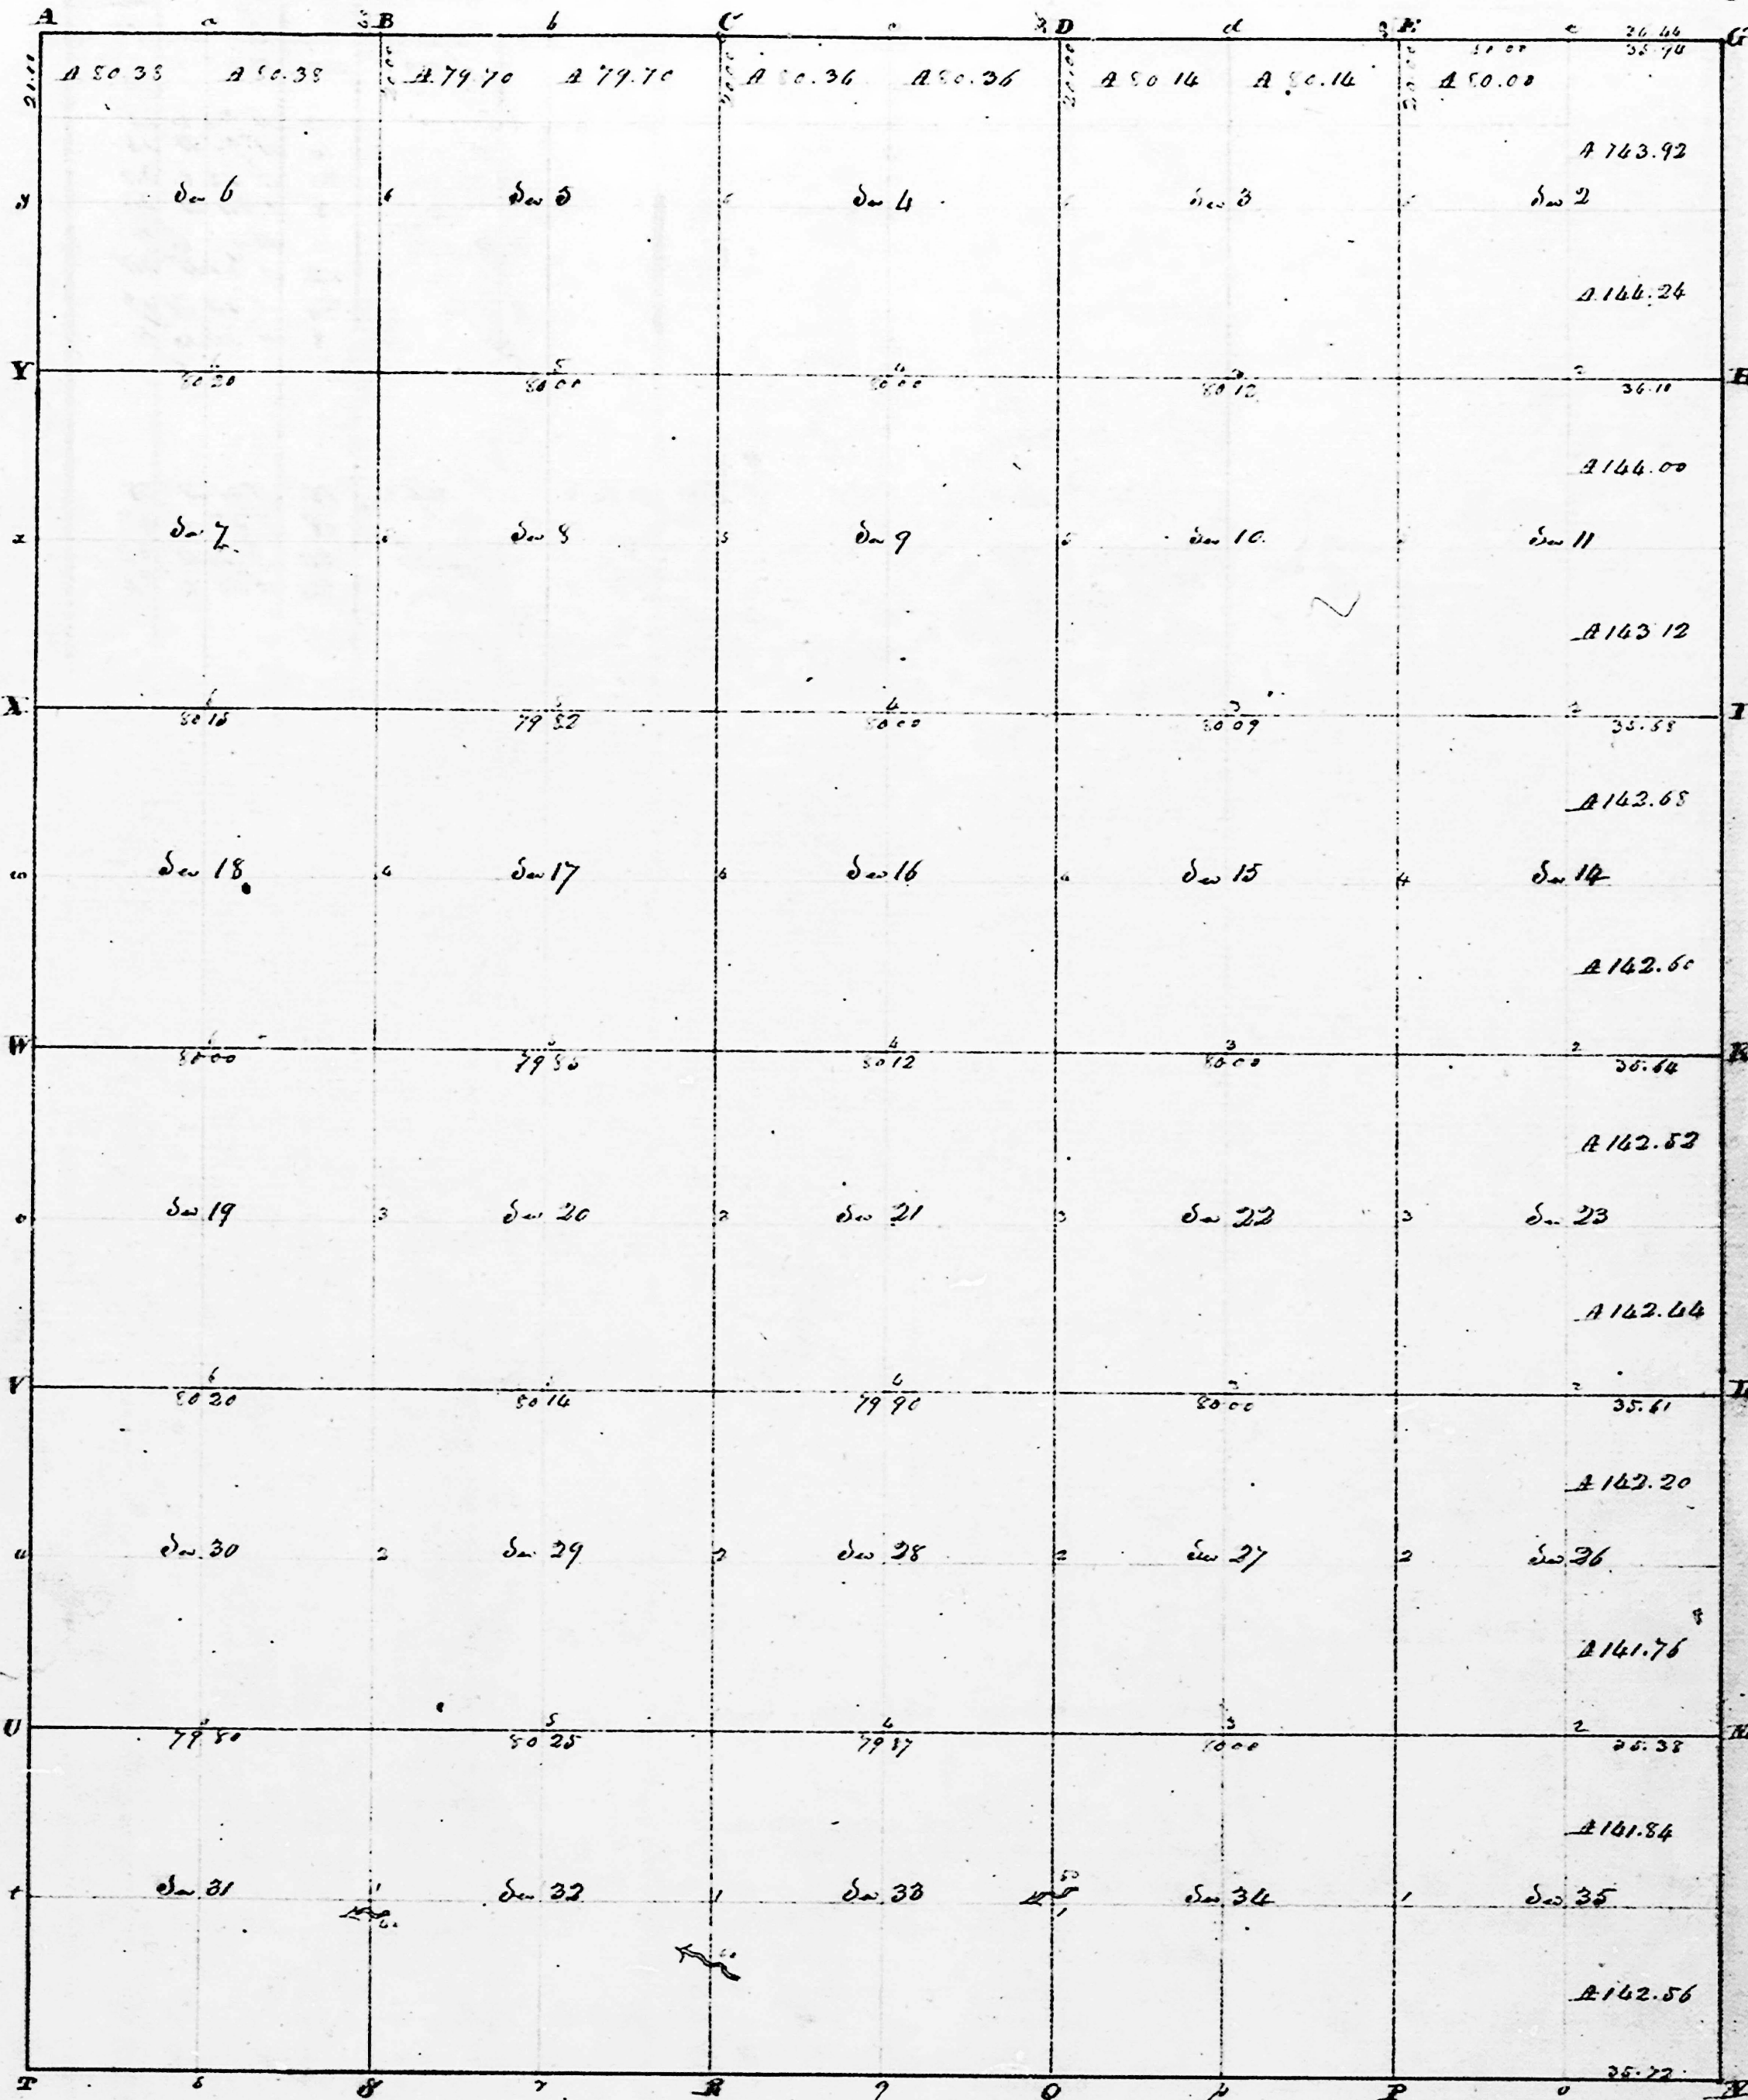 A a B b C c D d E e 36.44 G
21.11 20.00 20.00 20.00 20.00 80.00 35.94
A 80.38 A 80.38 A 79.70 A 79.70 A 80.36 A 80.36 A 80.14 A 80.14 A 80.00
A 143.92
y Sec 6 6 Sec 5 Sec 4 Sec 3 Sec 2
A 144.24
Y 5 4 3 2 H
80.20 80.00 80.00 80.12 36.10
A 144.00
x Sec 7 Sec 8 5 Sec 9 Sec 10 Sec 11
A 143.12
X 6 4 3 2 I
80.15 79.82 80.00 80.09 35.58
A 142.68
w Sec 18 4 Sec 17 4 Sec 16 4 Sec 15 4 Sec 14
A 142.60
W 5 4 3 2 K
80.00 79.85 80.12 80.00 35.64
A 142.52
v Sec 19 3 Sec 20 3 Sec 21 3 Sec 22 3 Sec 23
A 142.44
V 6 4 3 2 L
80.20 80.14 79.90 80.00 35.61
A 142.20
u Sec 30 2 Sec 29 2 Sec 28 2 Sec 27 2 Sec 26
A 141.76
U 5 4 3 2 M
79.80 80.25 79.87 80.00 35.38
A 141.84
t Sec 31 1 Sec 32 1 Sec 33 1 Sec 34 1 Sec 35
A 142.56
35.72
T s S r R q Q p P o N